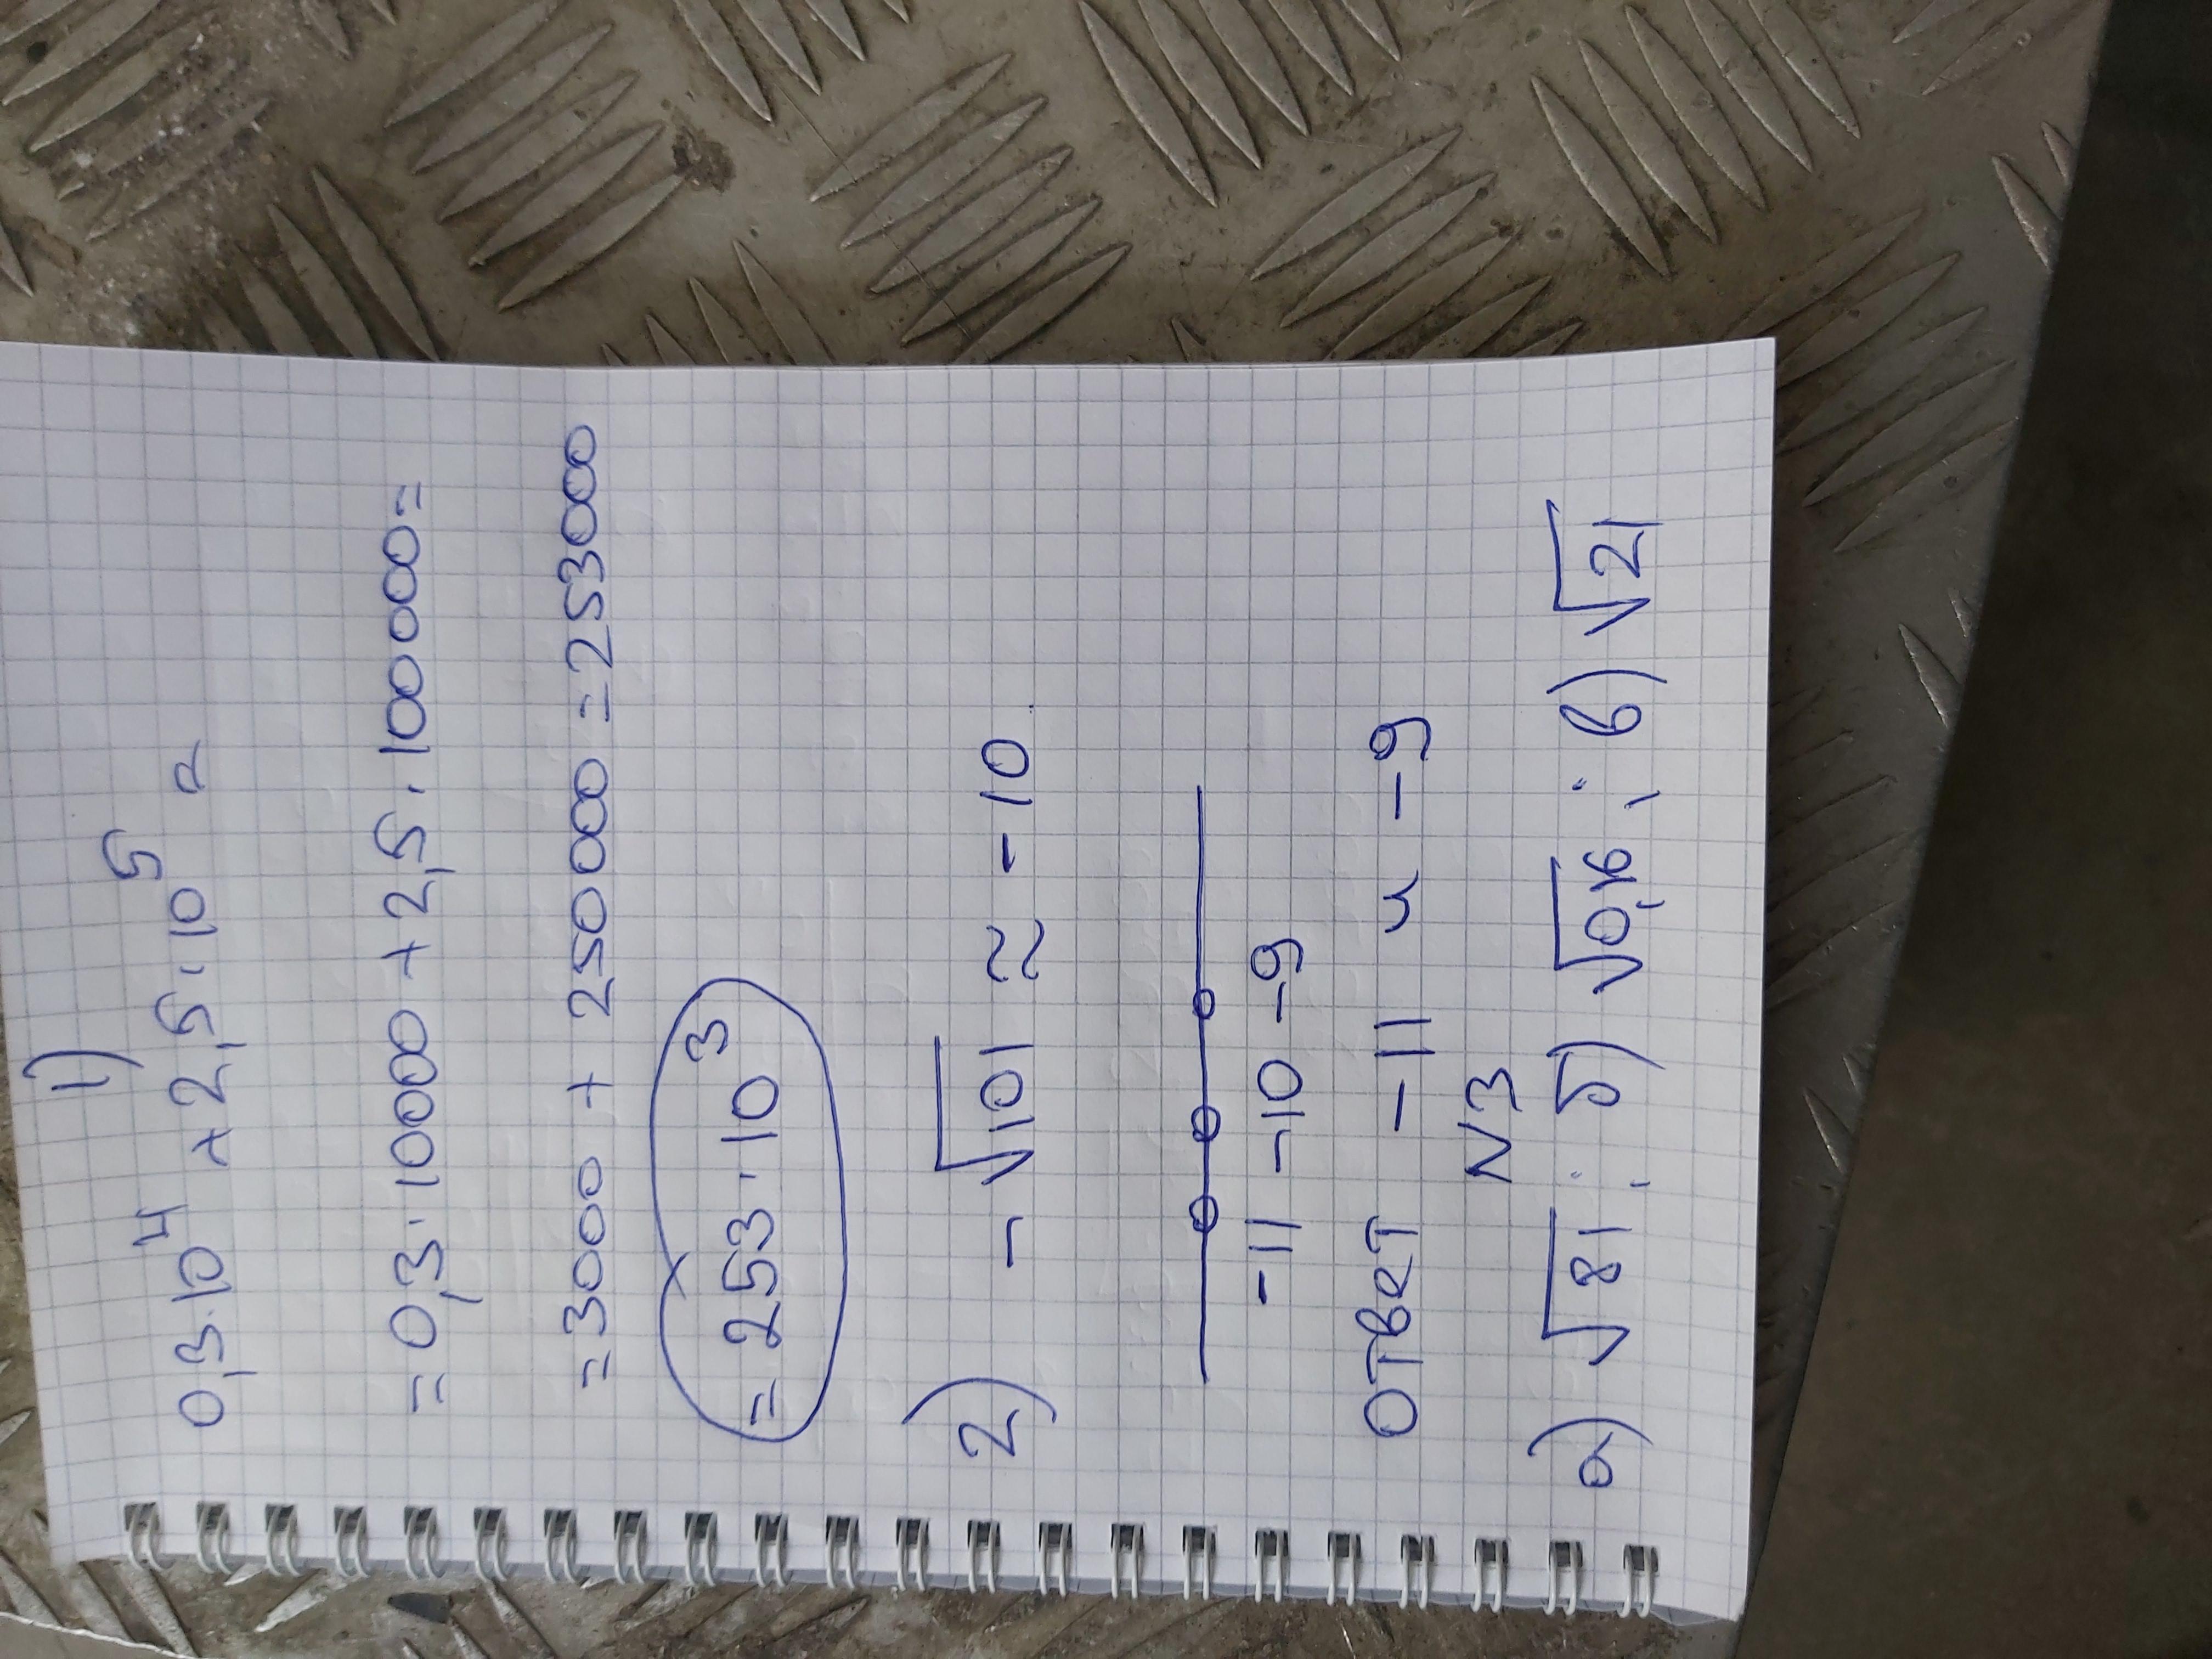 1)
0,3·10⁴ + 2,5·10⁵ =
= 0,3·10000 + 2,5·100000=
= 3000 + 250000 = 253000
= 253·10³
2) - √101 ≈ -10
-11 -10 -9
ОТВЕТ -11 и -9
N3
а) √81; б) √0,16; в) √21